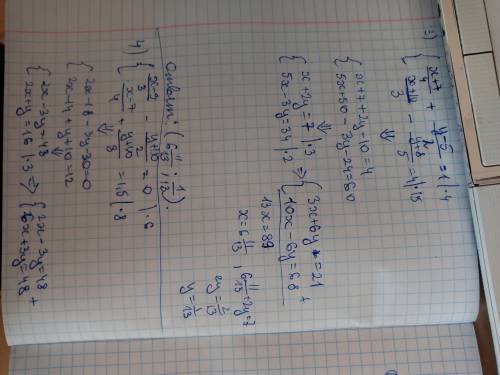 3) { (x+7)/4 + (y-5)/2 = 1 | · 4
(x+10)/3 - (y+8)/5 = 4 | · 15
⇓
{ x+7+2y-10=4
5x+50-3y-24=60
⇓
{ x+2y=7 | · 3 ⇒ { 3x+6y=21 +
5x-3y=34 | · 2 10x-6y=68
13x=89
x=6 11/13 ; 6 11/13+2y=7
2y=2/13
y=1/13
Ответ: (6 11/13 ; 1/13).
4) { (x-9)/3 - (y+10)/2 = 0 | · 6
(x-7)/4 + (y+10)/8 = 1,5 | · 8
⇓
{ 2x-18-3y-30=0
2x-14+y+10=12
⇓
{ 2x-3y=48
2x+y=16 | · 3 ⇒ { 2x-3y=48 +
6x+3y=48